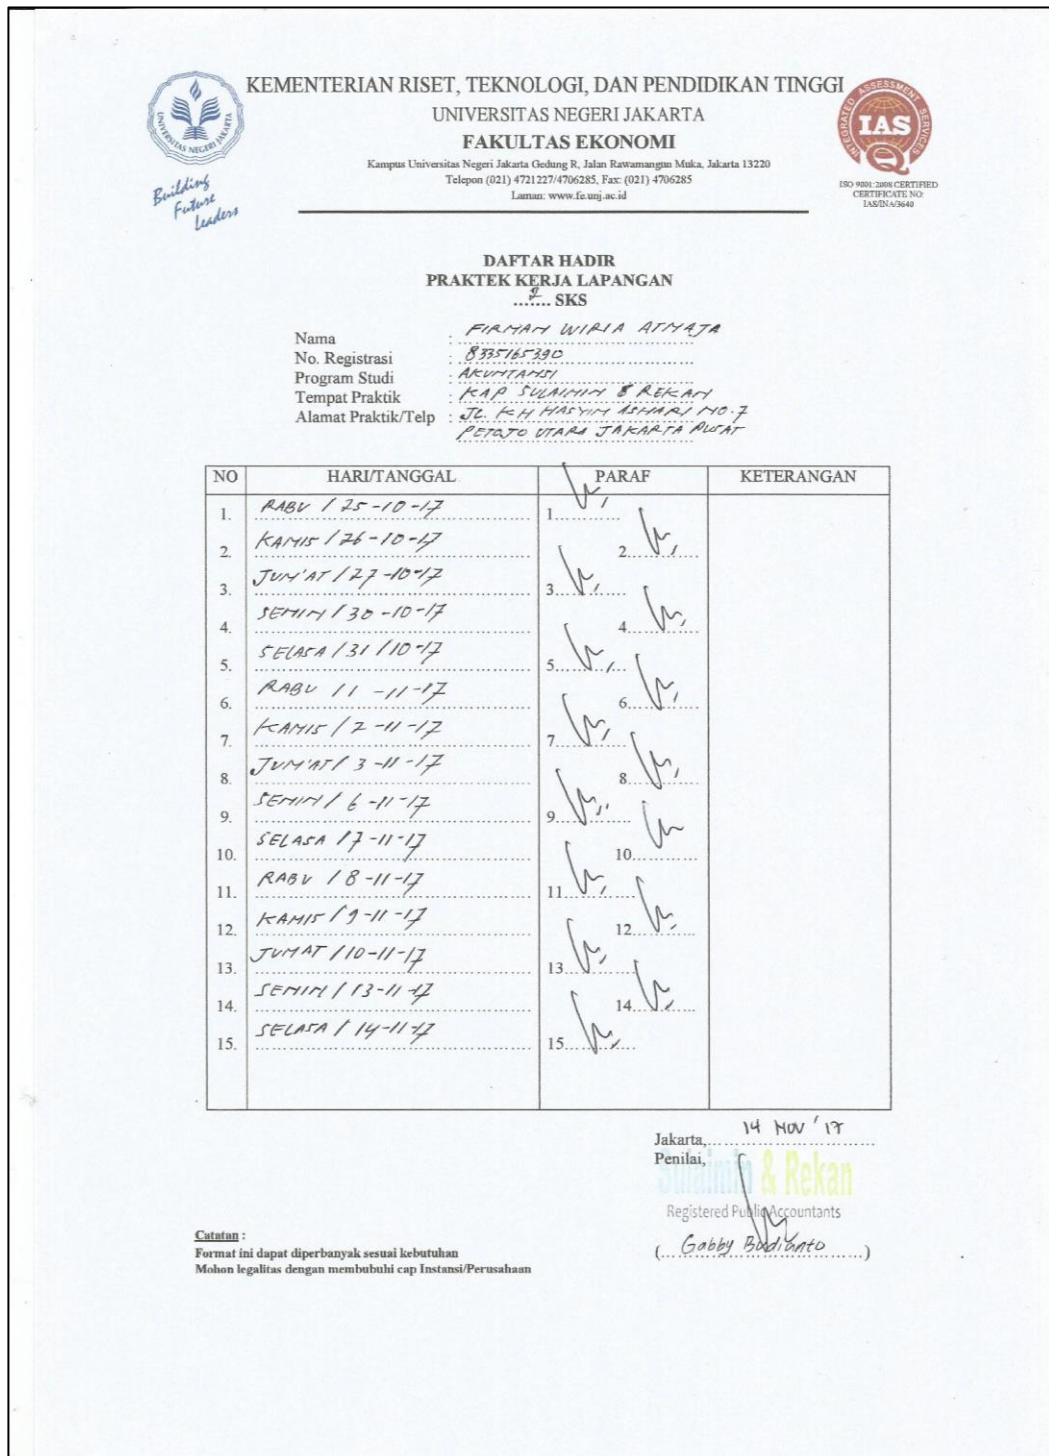 KEMENTERIAN RISET, TEKNOLOGI, DAN PENDIDIKAN TINGGI
UNIVERSITAS NEGERI JAKARTA
FAKULTAS EKONOMI
Kampus Universitas Negeri Jakarta Gedung R, Jalan Rawamangun Muka, Jakarta 13220
Telepon (021) 4721227/4706285, Fax: (021) 4706285
Laman: www.fe.unj.ac.id
UNIVERSITAS NEGERI JAKARTA
Building
Future
Leaders
INTEGRATED ASSESSMENT SERVICES
IAS
ISO 9001:2008 CERTIFIED
CERTIFICATE NO:
IAS/INA/3640
DAFTAR HADIR
PRAKTEK KERJA LAPANGAN
...2... SKS
Nama : FIRMAN WIRIA ATMAJA
No. Registrasi : 8335165390
Program Studi : AKUNTANSI
Tempat Praktik : KAP SULAIMIN & REKAN
Alamat Praktik/Telp : JL. KH HASYIM ASHARI NO.7
PETOJO UTARA JAKARTA PUSAT
NO HARI/TANGGAL PARAF KETERANGAN
1. RABU / 25-10-17 1.
2. KAMIS / 26-10-17 2.
3. JUM'AT / 27-10-17 3.
4. SENIN / 30-10-17 4.
5. SELASA / 31 / 10-17 5.
6. RABU / 1 -11-17 6.
7. KAMIS / 2-11-17 7.
8. JUM'AT / 3-11-17 8.
9. SENIN / 6-11-17 9.
10. SELASA / 7-11-17 10.
11. RABU / 8-11-17 11.
12. KAMIS / 9-11-17 12.
13. JUMAT / 10-11-17 13.
14. SENIN / 13-11-17 14.
15. SELASA / 14-11-17 15.
Jakarta, 14 NOV '17
Penilai,
Sulaimin & Rekan
Registered Public Accountants
(Gabby Budianto)
Catatan :
Format ini dapat diperbanyak sesuai kebutuhan
Mohon legalitas dengan membubuhi cap Instansi/Perusahaan